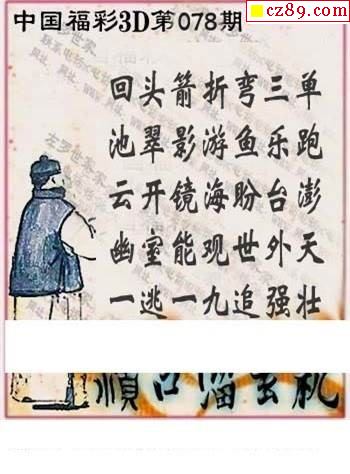 cz89.com
中国福彩3D第078期
回头箭折弯三单
池翠影游鱼乐跑
云开镜海盼台澎
幽室能观世外天
一逃一九追强壮
顺口溜玄机